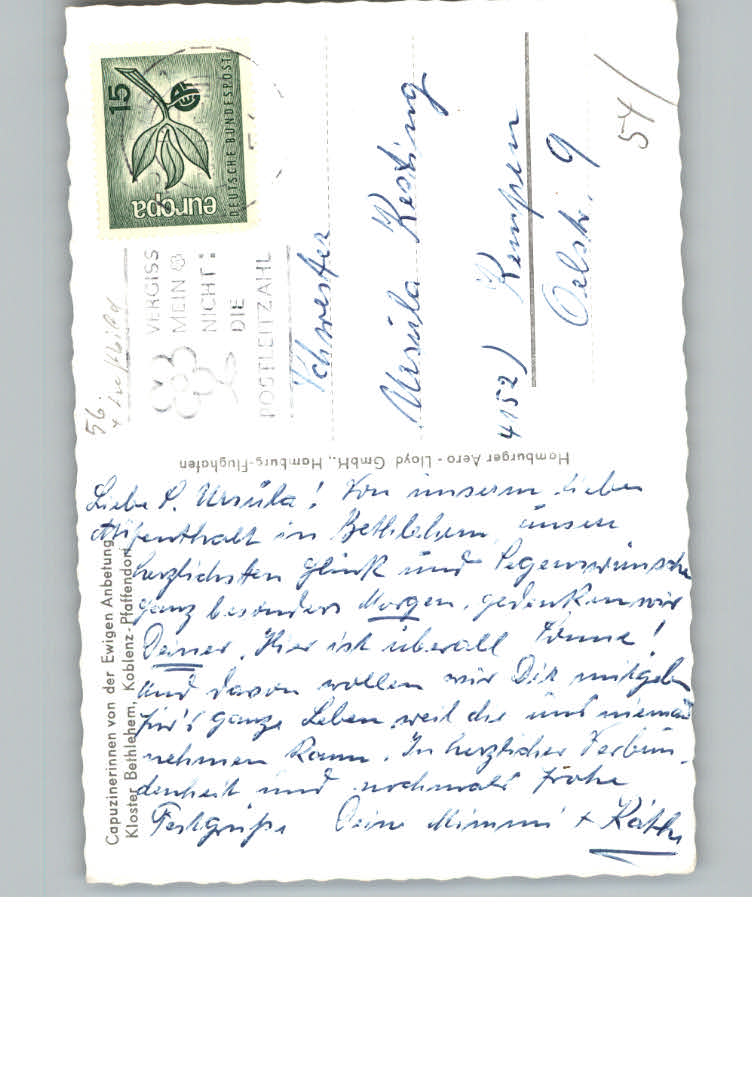 15
DEUTSCHE BUNDESPOST
europa
VERGISS
MEIN
NICHT:
DIE
POSTLEITZAHL
56.
+ Luftbild
54/
Schwester
Ursula Kesting
4152) Kempen
Oelstr. 9
Hamburger Aero-Lloyd GmbH., Hamburg-Flughafen
Capuzinerinnen von der Ewigen Anbetung
Kloster Bethlehem, Koblenz-Pfaffendorf
Liebe S. Ursula! Von unserm lieben
Aufenthalt in Bethlehem unsere
herzlichsten Glück und Segenswünsche
ganz besonders Morgen, gedenken wir
Deiner. Hier ist überall Sonne!
Und davon wollen wir Dir mitgeben
für's ganze Leben, weil die uns niemand
nehmen kann. In herzlicher Verbun-
denheit und nochmals frohe
Festgrüße Deine Mimmi + Käthe